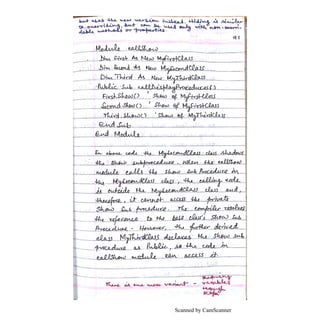 but uses the new version instead. Hiding is similar
to overriding, but can be used only with non-overri-
dable methods or properties
Module callShow
Dim First As New MyFirstClass
Dim Second As New MySecondClass
Dim Third As New MyThirdClass
Public Sub callDisplayProcedures()
First.Show() ' Show of MyFirstClass
Second.Show() ' Show of MyFirstClass
Third.Show() ' Show of MyThirdClass
End Sub
End Module
In above code the MySecondClass class shadows
the Show subprocedure. When the callShow
module calls the Show sub procedure in
the MySecondClass class, the calling code
is outside the MySecondClass class and,
therefore, it cannot access the private
Show Sub procedure. The compiler resolves
the reference to the base class's Show Sub
Procedure. However the further derived
class MyThirdClass declares the Show sub
procedure as Public, so the code in
callShow module can access it
There is one more variant -
variables
through
Scanned by CamScanner